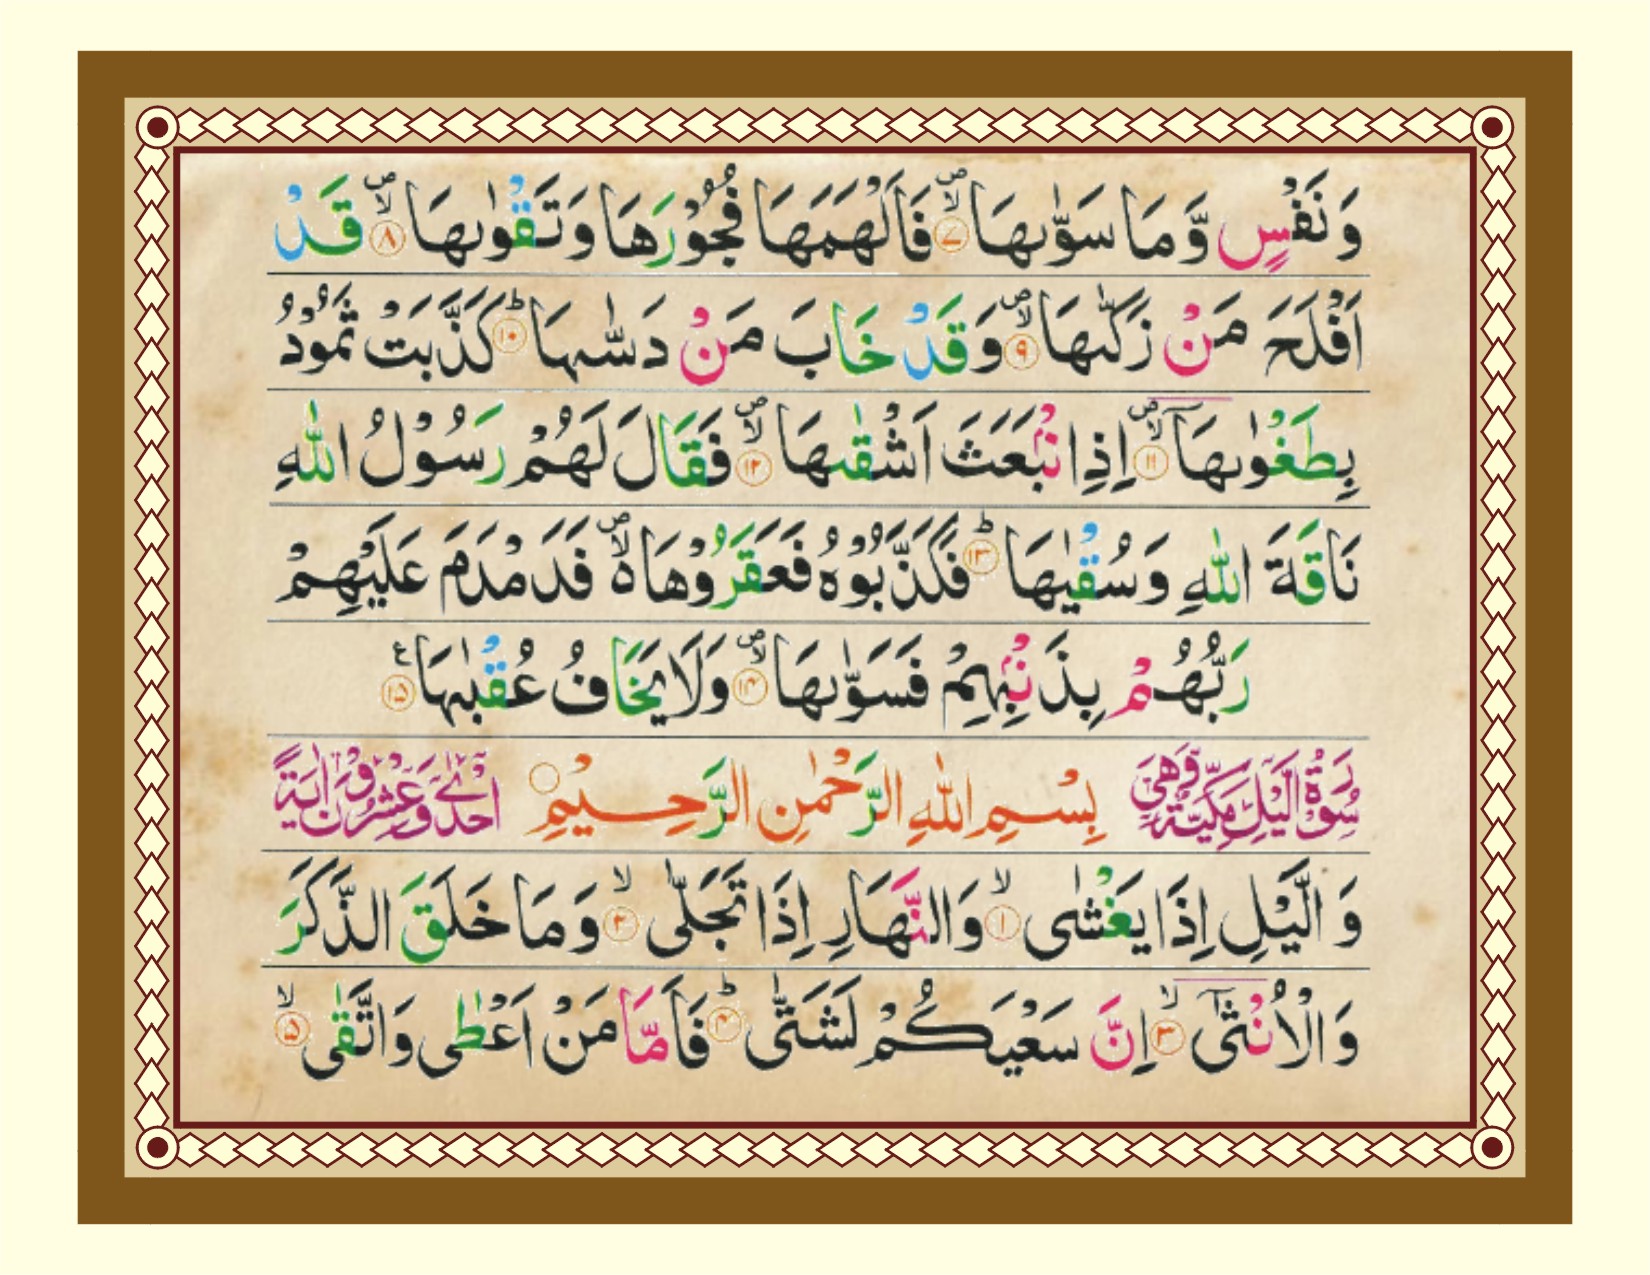 وَنَفْسٍ وَّمَا سَوّٰىهَا ۪ۙ﴿۷﴾ فَاَلْهَمَهَا فُجُوْرَهَا وَتَقْوٰىهَا ۪ۙ﴿۸﴾ قَدْ
اَفْلَحَ مَنْ زَكّٰىهَا ۪ۙ﴿۹﴾ وَقَدْ خَابَ مَنْ دَسّٰىهَا ؕ﴿۱۰﴾ كَذَّبَتْ ثَمُوْدُ
بِطَغْوٰىهَاۤ ۪ۙ﴿۱۱﴾ اِذِانْۢبَعَثَ اَشْقٰىهَا ۪ۙ﴿۱۲﴾ فَقَالَ لَهُمْ رَسُوْلُ اللّٰهِ
نَاقَةَ اللّٰهِ وَسُقْيٰهَا ؕ﴿۱۳﴾ فَكَذَّبُوْهُ فَعَقَرُوْهَا ۪ۙ۬ فَدَمْدَمَ عَلَيْهِمْ
رَبُّهُمْ بِذَنْۢبِهِمْ فَسَوّٰىهَا ۪ۙ﴿۱۴﴾ وَلَا يَخَافُ عُقْبٰهَا ع﴿۱۵﴾
سُوْرَةُ الَّيْلِ مَكِّيَّةٌ وَّهِيَ بِسْمِ اللّٰهِ الرَّحْمٰنِ الرَّحِيْمِ ۝ اِحْدٰى وَعِشْرُوْنَ اٰيَةً
وَالَّيْلِ اِذَا يَغْشٰى ۙ﴿۱﴾ وَالنَّهَارِ اِذَا تَجَلّٰى ۙ﴿۲﴾ وَمَا خَلَقَ الذَّكَرَ
وَالْاُنْثٰۤى ۙ﴿۳﴾ اِنَّ سَعْيَكُمْ لَشَتّٰى ؕ﴿۴﴾ فَاَمَّا مَنْ اَعْطٰى وَاتَّقٰى ۙ﴿۵﴾